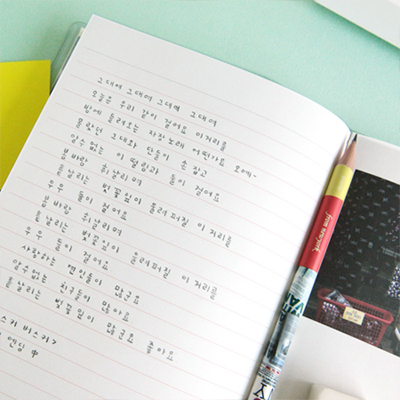 그대여 그대여 그대여 그대여
오늘은 우리 같이 걸어요 이거리를
밤에 들려오는 자장노래 어떤가요 오예-
몰랐던 그대와 단둘이 손잡고
알수 없는 이 떨림과 둘이 걸어요
봄바람 휘날리며
흩날리는 벚꽃잎이 울려퍼질 이 거리를
우우 둘이 걸어요
봄바람 휘날리며
흩날리는 벚꽃잎이 울려퍼질 이 거리를
우우 둘이 걸어요
사랑하는 연인들이 많군요
알수 없는 친구들이 많아요
흩날리는 벚꽃잎이 많군요 좋아요
스커 버스커>
엔딩 中